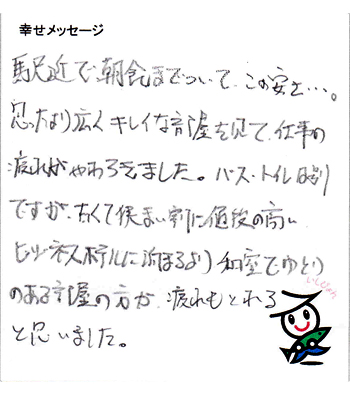 幸せメッセージ
駅近で、朝食までついて、この安さ…。
思ったより広くキレイな部屋を見て、仕事の
疲れがやわらぎました。バス・トイレ別
ですが、古くて狭まい割に値段の高い
ビジネスホテルに泊まるより和室でゆとり
のある部屋の方が、疲れもとれる
と思いました。